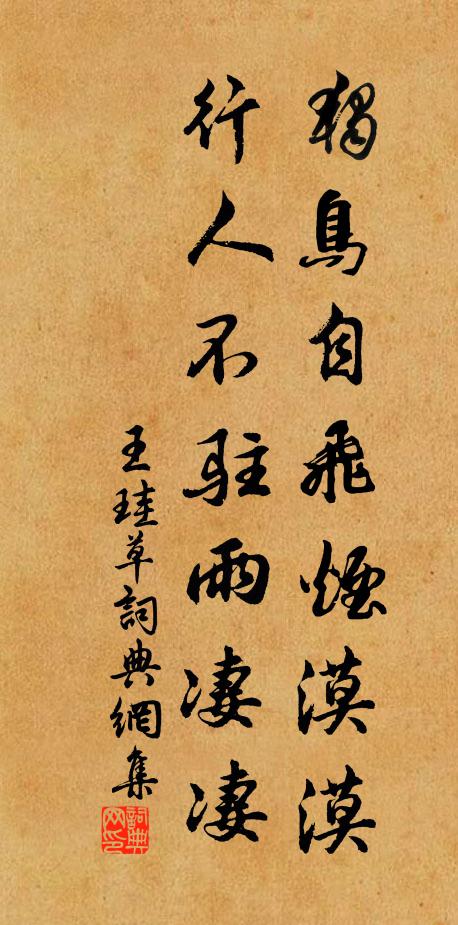 獨鳥自飛煙漠漠
行人不駐雨凄凄
王珪草詞典網集
詞典网印